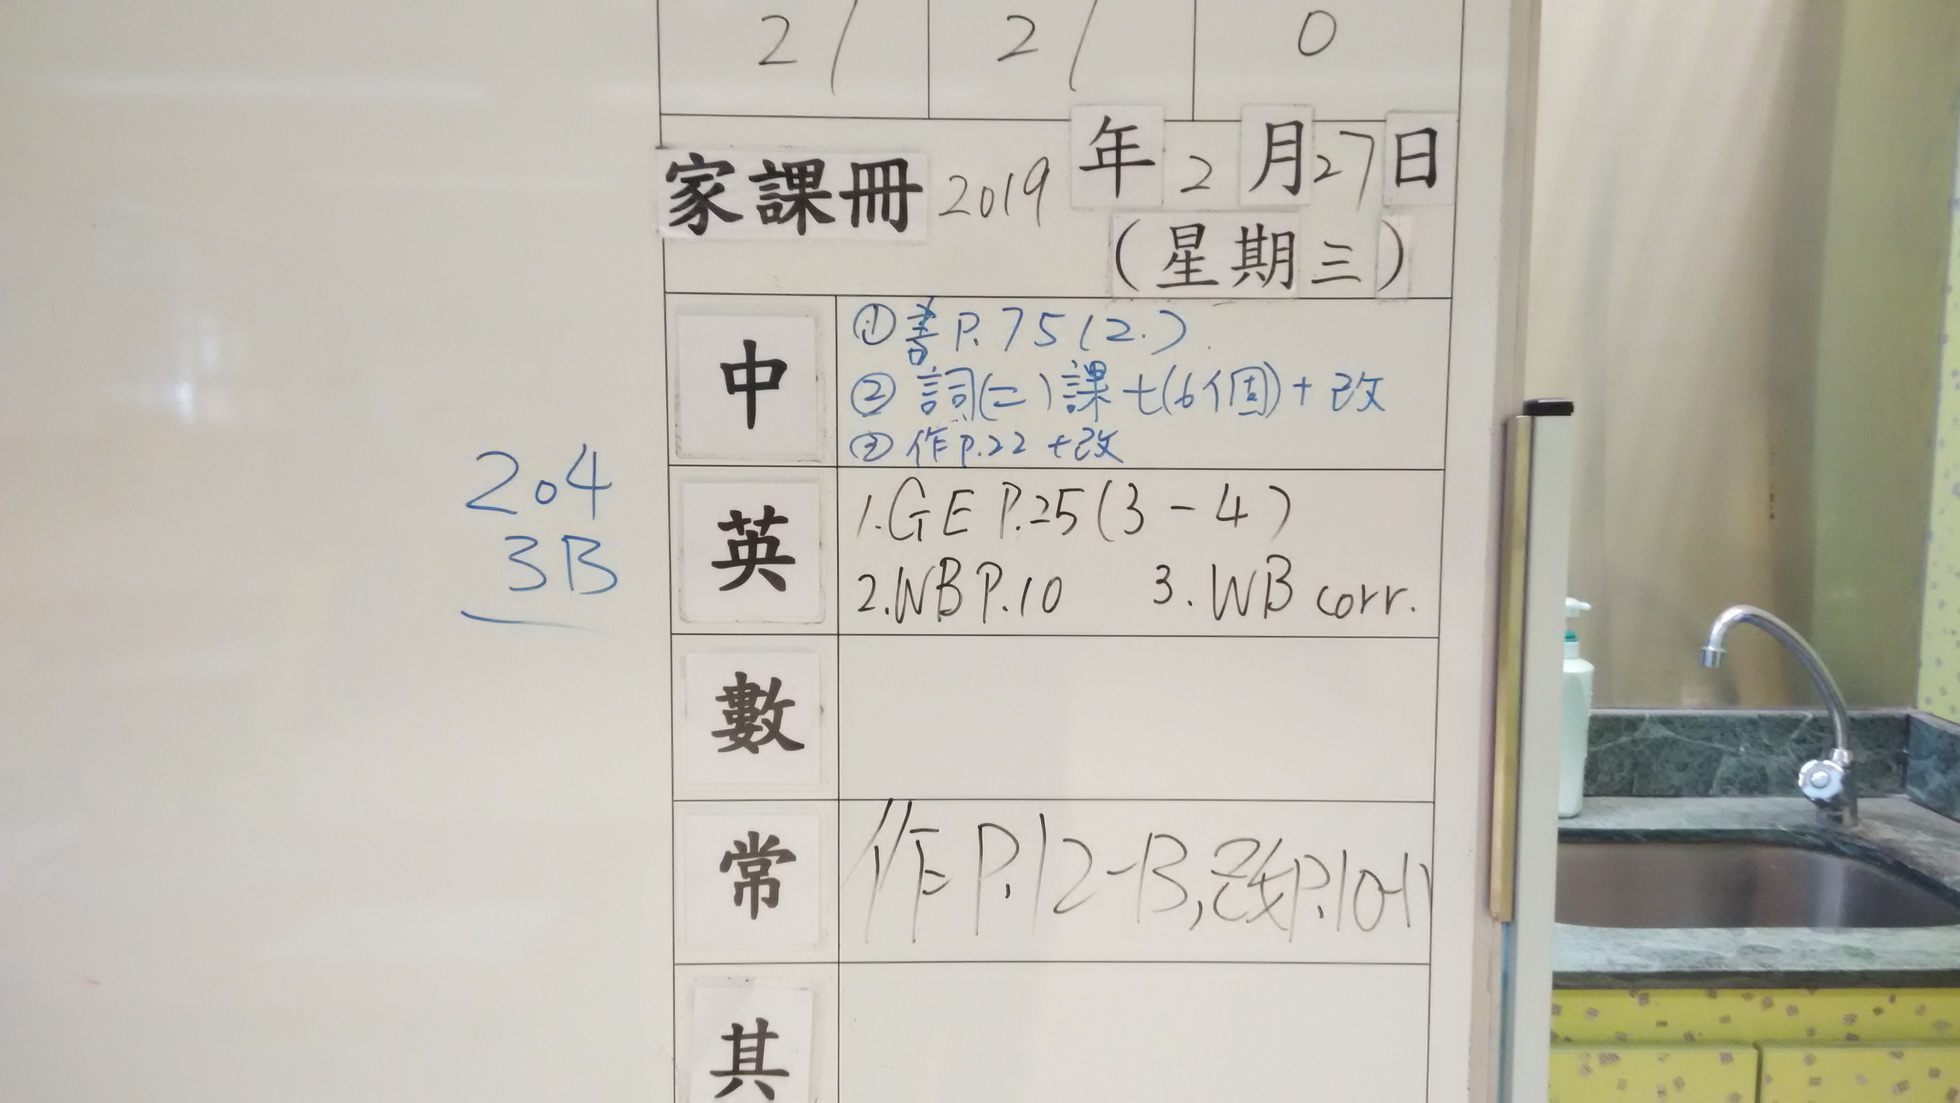 21 21 0
家課冊 2019 年 2 月 27 日
(星期三)
中
①書P.75(2.)
②詞(二)課七(6個)+改
③作P.22+改
204
3B
英
1.GE P.25(3-4)
2.WB P.10 3.WB corr.
數
常
作P.12-13,改P.10-11
其